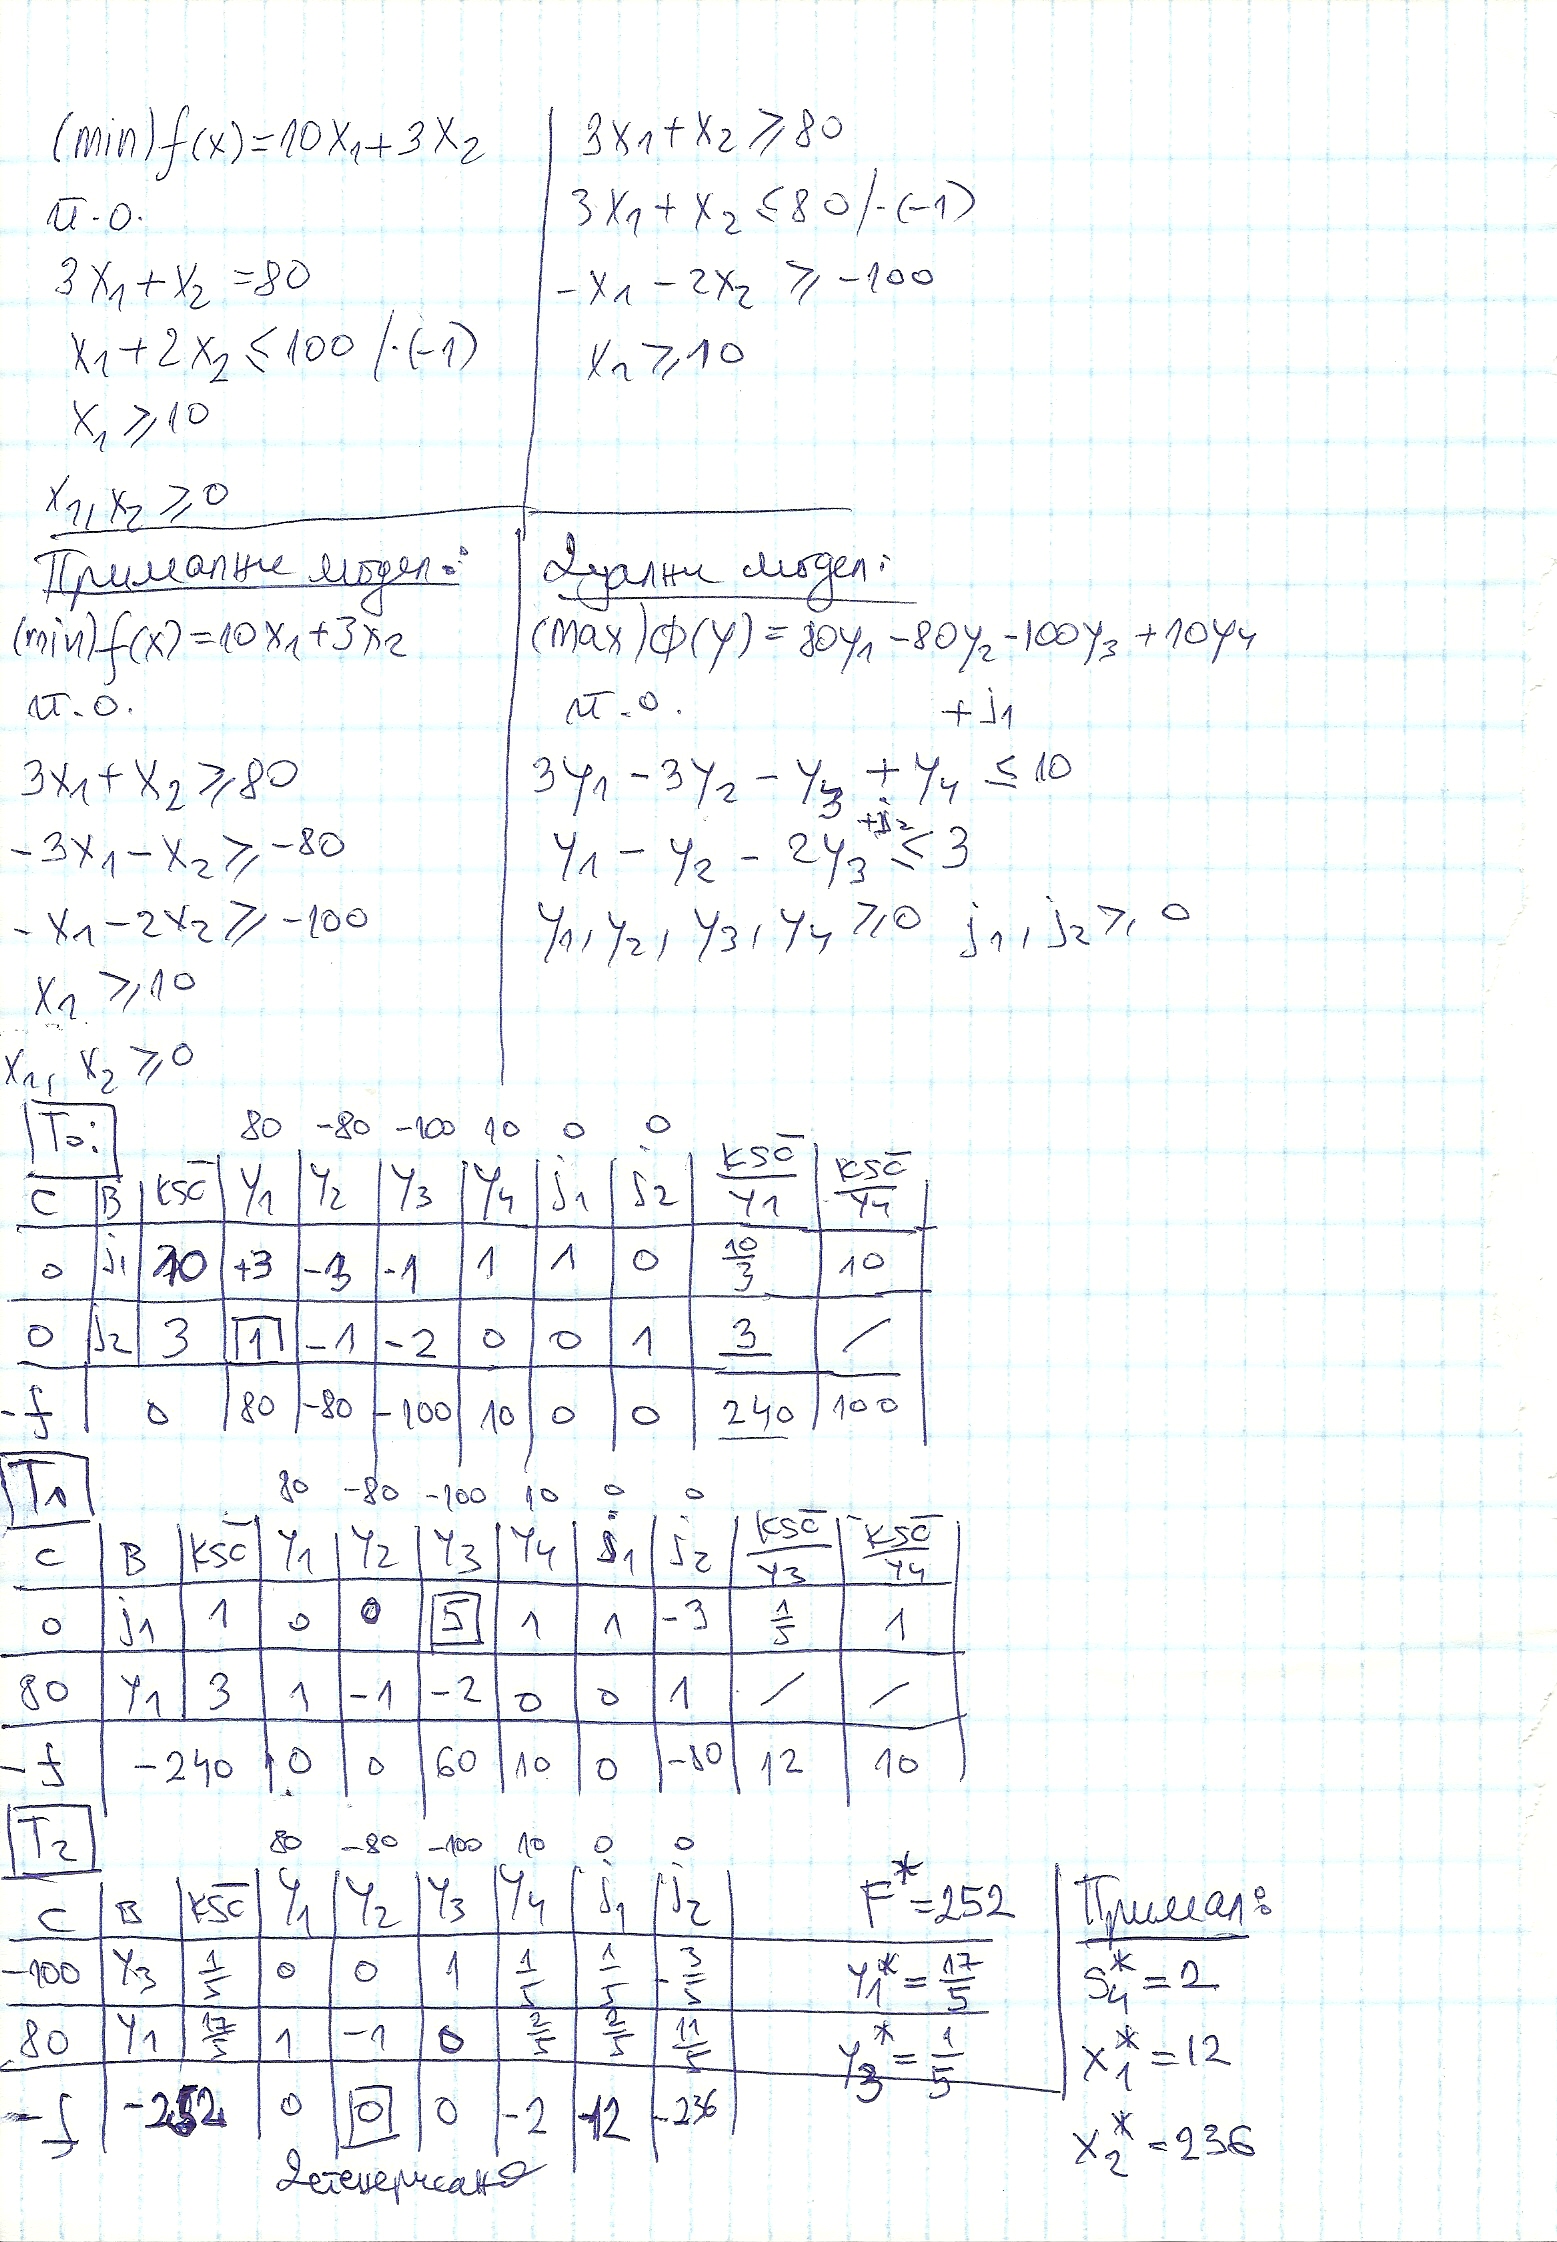 (min) f(x) = 10x₁ + 3x₂
п.о.
3x₁ + x₂ = 80
x₁ + 2x₂ ≤ 100 /·(-1)
x₁ ≥ 10
x₁, x₂ ≥ 0
3x₁ + x₂ ≥ 80
3x₁ + x₂ ≤ 80 /·(-1)
-x₁ - 2x₂ ≥ -100
x₁ ≥ 10
Примални модел:
(min) f(x) = 10x₁ + 3x₂
п.о.
3x₁ + x₂ ≥ 80
-3x₁ - x₂ ≥ -80
-x₁ - 2x₂ ≥ -100
x₁ ≥ 10
x₁, x₂ ≥ 0
Дуални модел:
(max) φ(y) = 80y₁ - 80y₂ - 100y₃ + 10y₄
п.о. +j₁
3y₁ - 3y₂ - y₃ + y₄ ≤ 10
+j₂
y₁ - y₂ - 2y₃ ≤ 3
y₁, y₂, y₃, y₄ ≥ 0 j₁, j₂ ≥ 0
T₀:
80 -80 -100 10 0 0
C B KSC̄ y₁ y₂ y₃ y₄ j₁ j₂ KSC̄/y1 KSC̄/y4
0 j₁ 10 +3 -3 -1 1 1 0 10/3 10
0 j₂ 3 1 -1 -2 0 0 1 3 /
-f 0 80 -80 -100 10 0 0 240 100
T₁
80 -80 -100 10 0 0
C B KSC̄ y₁ y₂ y₃ y₄ j₁ j₂ KSC̄/y3 KSC̄/y4
0 j₁ 1 0 0 5 1 1 -3 1/5 1
80 y₁ 3 1 -1 -2 0 0 1 / /
-f -240 0 0 60 10 0 -80 12 10
T₂
80 -80 -100 10 0 0
C B KSC̄ y₁ y₂ y₃ y₄ j₁ j₂
-100 y₃ 1/5 0 0 1 1/5 1/5 -3/5
80 y₁ 17/5 1 -1 0 2/5 2/5 11/5
-f -252 0 0 0 -2 -12 -236
F* = 252
y₁* = 17/5
y₃* = 1/5
Примал:
S₄* = 2
x₁* = 12
x₂* = 236